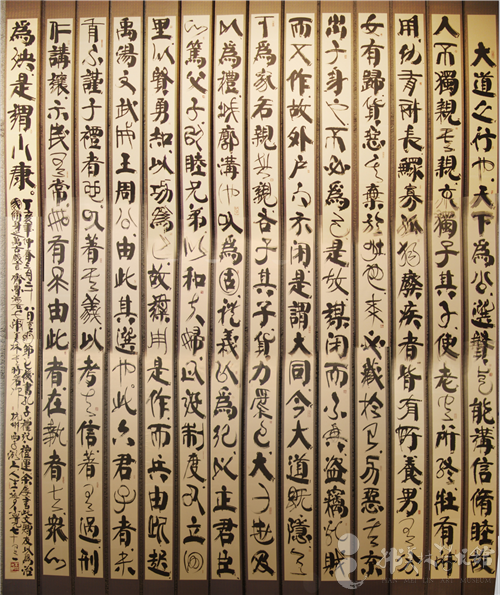 大道之行也天下為公選賢与能講信脩睦
人不獨親其親不獨子其子使老有所終壯有所
用幼有所長鰥寡孤獨廢疾者皆有所養男有分
女有歸貨惡其棄於地也不必藏於己力惡其不
出于身也而不必為己是故謀閉而不興盜竊亂賊
而不作故外户而不閉是謂大同今大道既隱天
下為家各親其親各子其子貨力為己大人世及
以為禮城郭溝池以為固禮義以為紀以正君臣
以篤父子以睦兄弟以和夫婦以設制度以立田
里以賢勇知以功為己故謀用是作而兵由此起
禹湯文武成王周公由此其選也此六君子者未
有不謹于禮者也以著其義以考其信著有過刑
仁講讓示民有常如有不由此者在執者去衆以
為殃是謂小康。